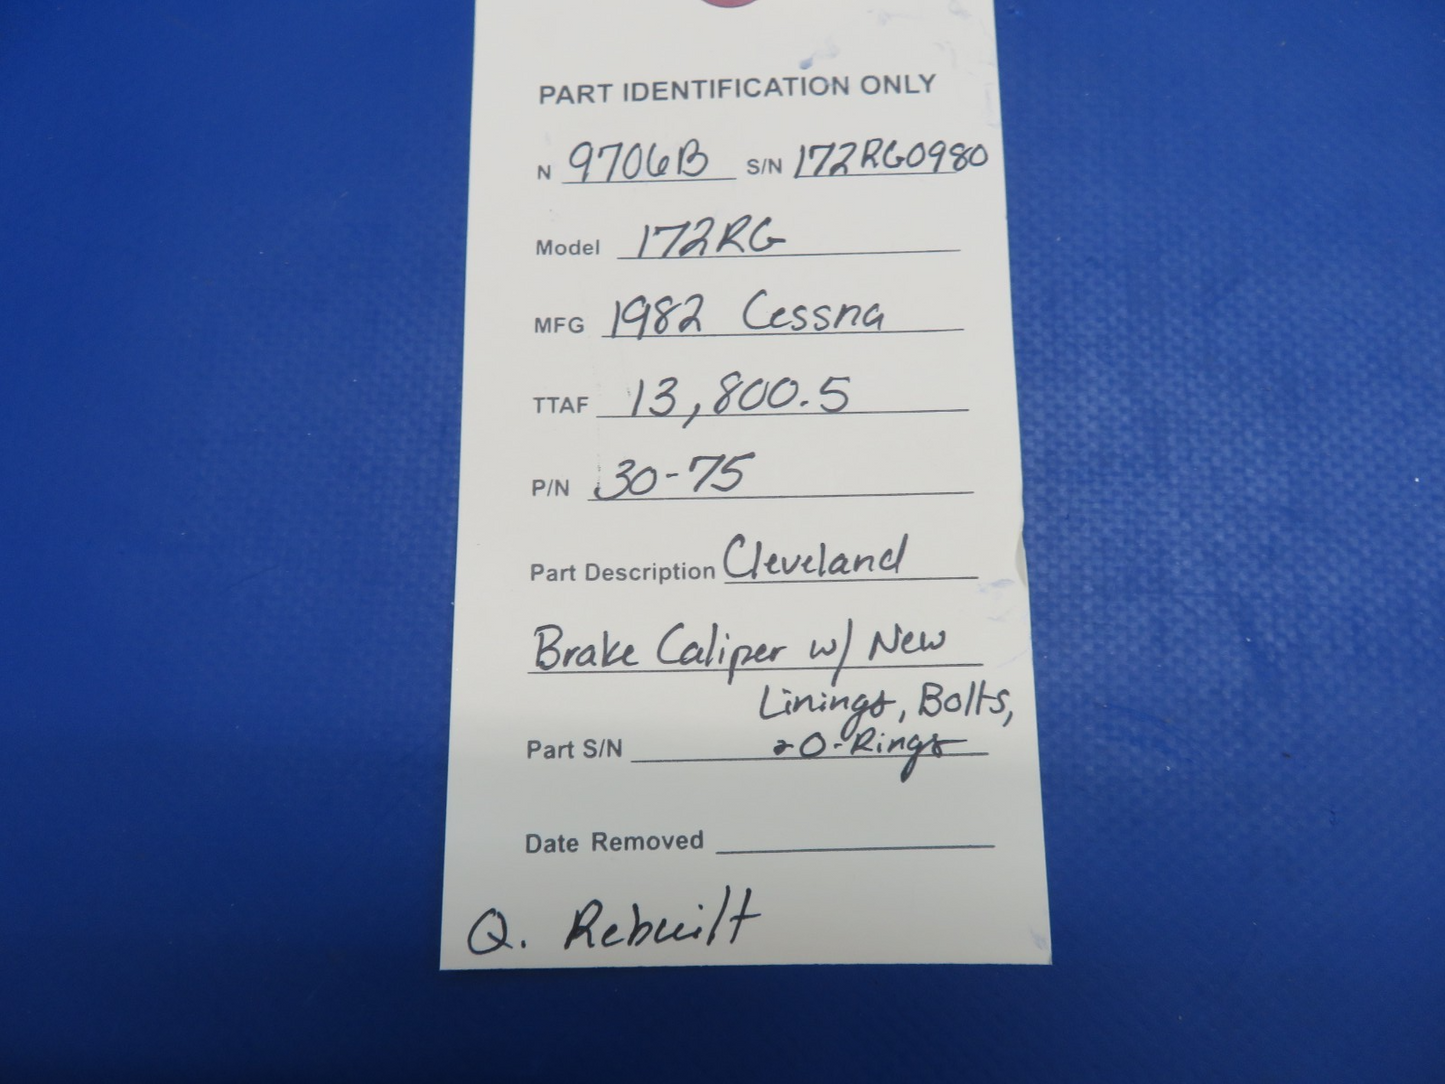 PART IDENTIFICATION ONLY
N 9706B S/N 172RG0980
Model 172RG
MFG 1982 Cessna
TTAF 13,800.5
P/N 30-75
Part Description Cleveland
Brake Caliper w/ New
Linings, Bolts,
Part S/N & O-Rings
Date Removed
Q. Rebuilt